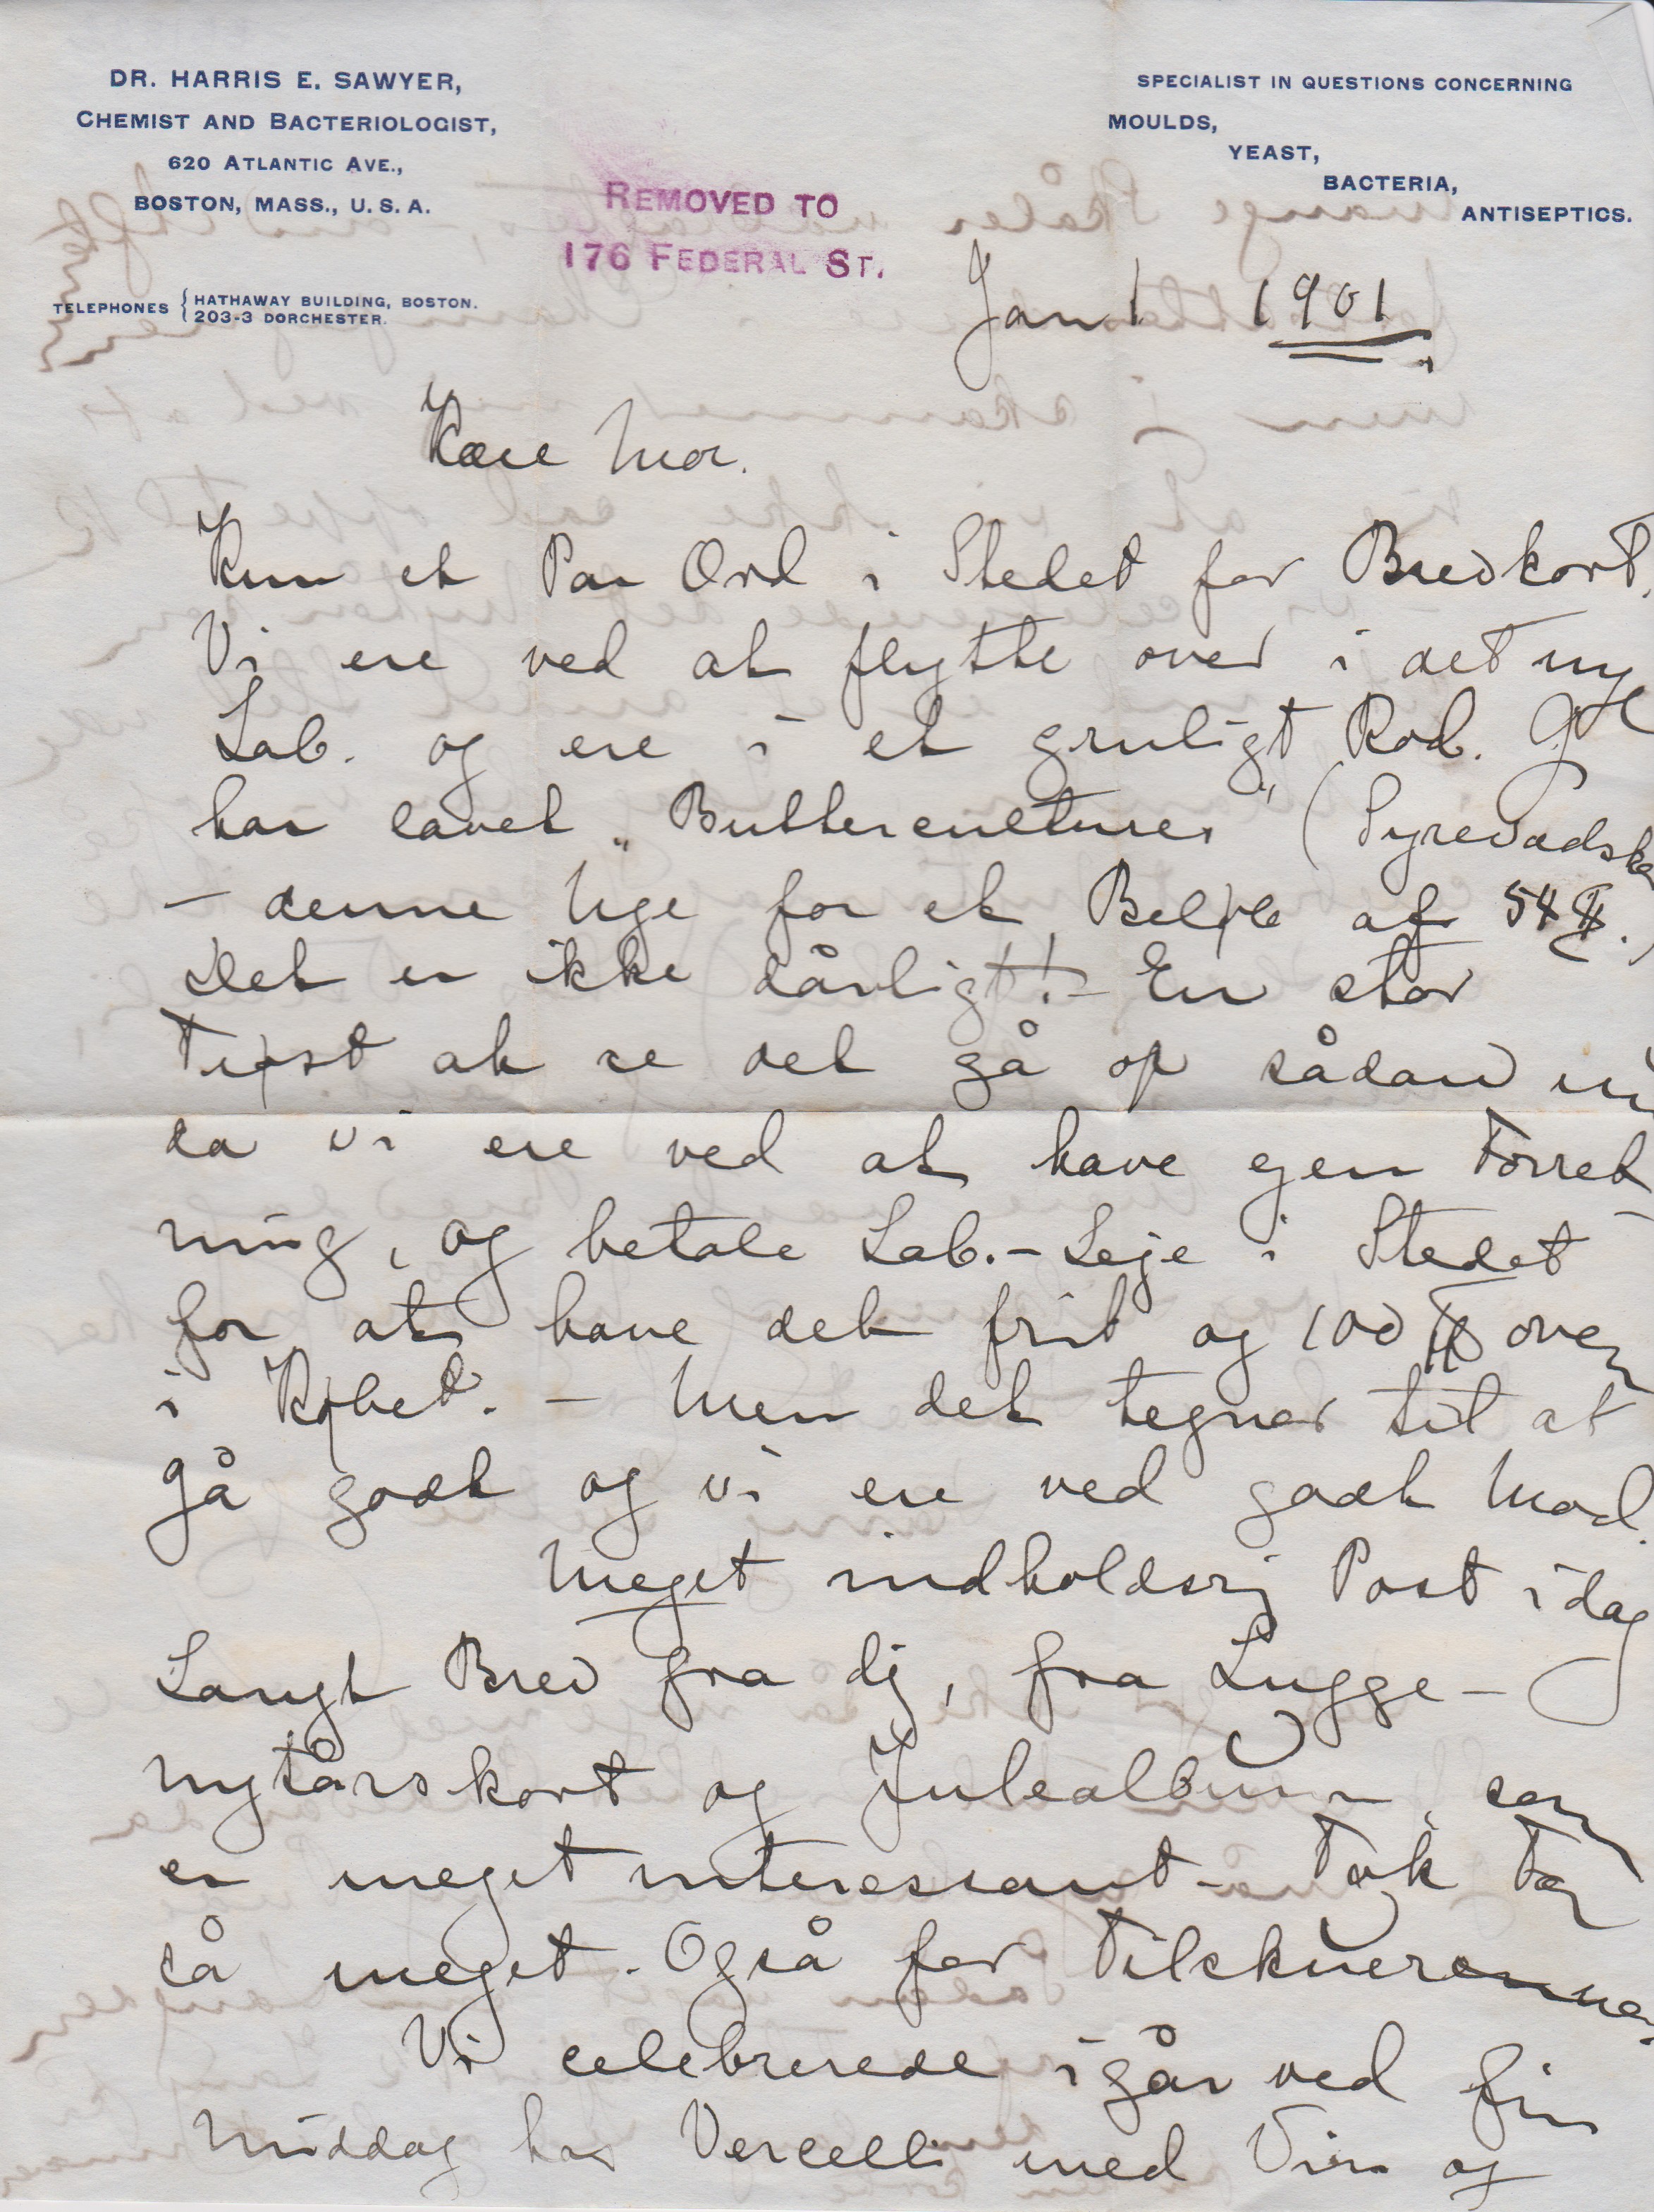 DR. HARRIS E. SAWYER,
CHEMIST AND BACTERIOLOGIST,
620 ATLANTIC AVE.,
BOSTON, MASS., U. S. A.
TELEPHONES { HATHAWAY BUILDING, BOSTON.
203-3 DORCHESTER.
REMOVED TO
176 FEDERAL ST.
SPECIALIST IN QUESTIONS CONCERNING
MOULDS,
YEAST,
BACTERIA,
ANTISEPTICS.
Jan 1 1901.
Kære Mor.
Kun et Par Ord i Stedet for Brevkort.
Vi ere ved at flytte over i det ny
Lab. og ere i et gruligt Rod. Gl
har lavet "Buttercultures" (Syrevædske
- denne Uge for et Beløb af 54 $.)
Det er ikke dårligt! - En stor
Trøst at se det gå op sådan nu
da vi ere ved at have egen Forret
ning, og betale Lab.-Leje i Stedet
for at have det frit og 100 $ oven
i Købet. - Men det tegner til at
gå godt og vi ere ved godt Mod.
Meget indholdsrig Post idag
Langt Brev fra dig, fra Lugge -
Nytårskort og Julealbum, som
er meget interessant - Tak for
så meget. Også for Tilskuerenne.
Vi celebrerede igår ved fin
Middag hos Vercelli med Vin og